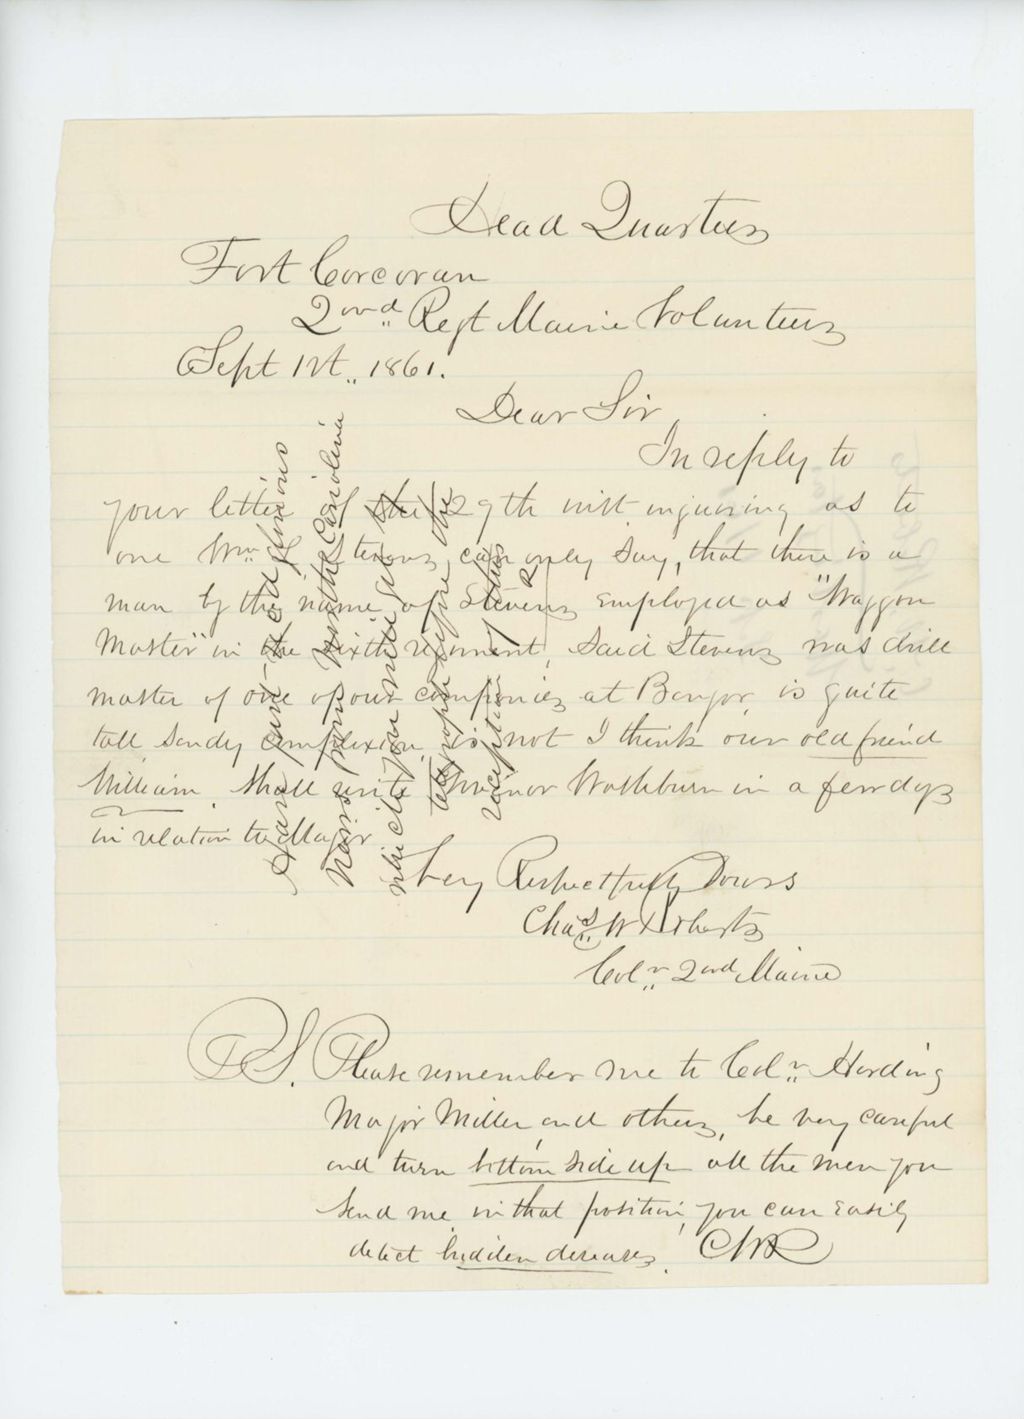 Head Quarters
Fort Corcoran
2ond Regt Maine Volunteers
Sept 1st 1861.
Dear Sir
In reply to
your letter of the 29th inst inquiring as to
one Wm Stevens can only say, that there is a
man by the name of Stevens employed as "Waggon
Master" in the sixth regiment, Said Stevens was drill
master of one of our companies at Bangor, is quite
tall sandy complexion, is not I think our old friend
William. Shall write Governor Washburn in a few days
in relation to Major
Very Respectfully Yours
Chas W Roberts
Coln 2ond Maine
P.S. Please remember me to Coln Harding
Major Miller, and others, be very careful
and turn bottom side up all the men you
send me in that position, you can easily
detect hidden diseases. CWR
news from North Carolina
reception of this